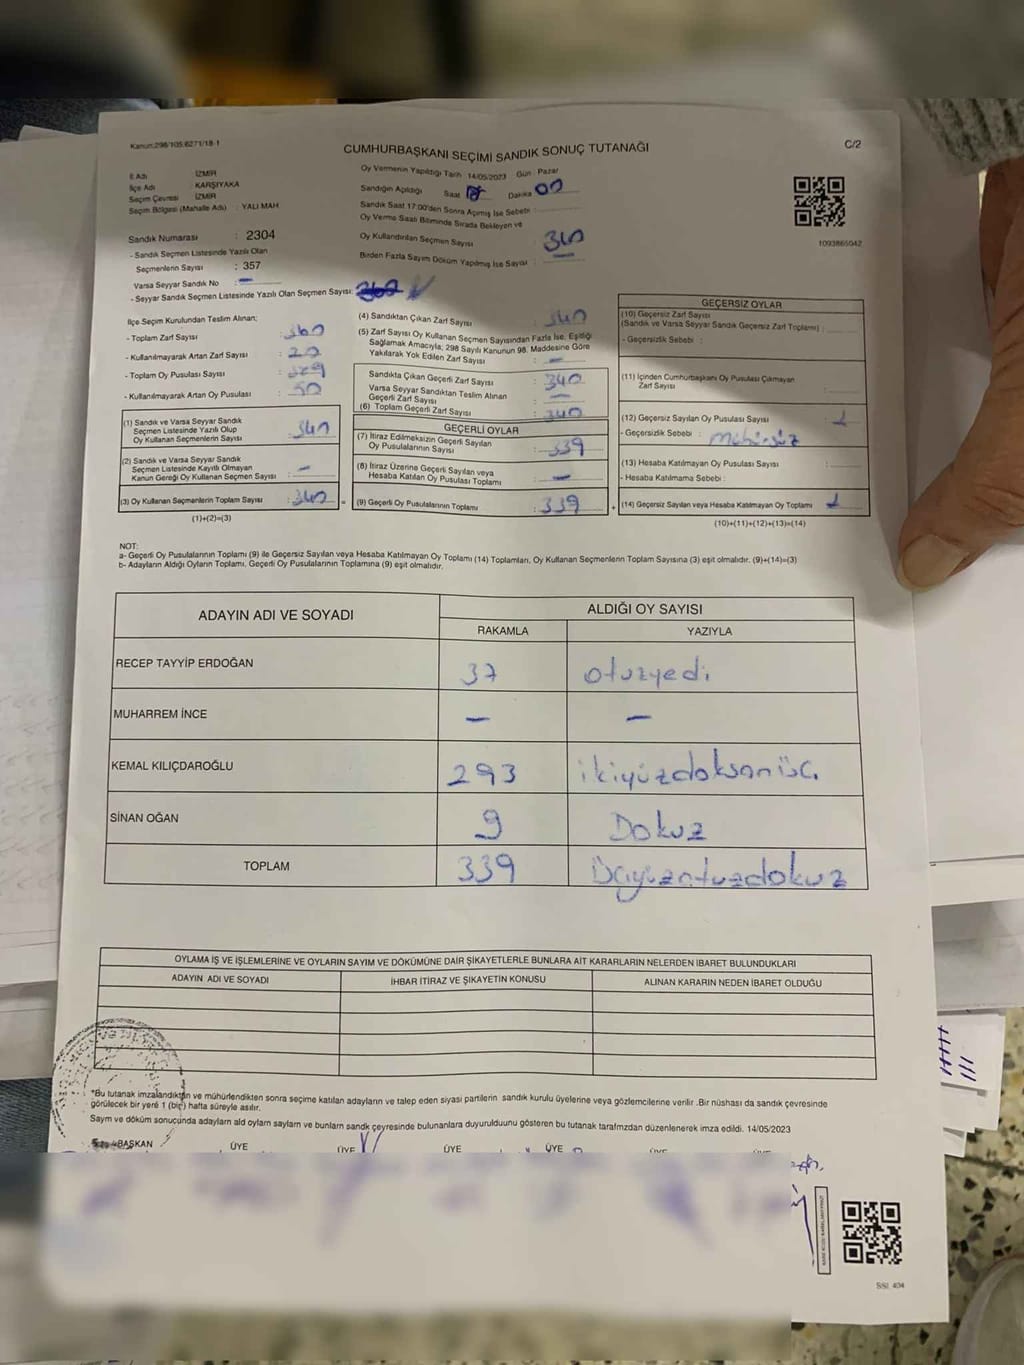 Kanun:298/105,6271/18-1
CUMHURBAŞKANI SEÇİMİ SANDIK SONUÇ TUTANAĞI
C/2
İl Adı : İZMİR
İlçe Adı : KARŞIYAKA
Seçim Çevresi : İZMİR
Seçim Bölgesi (Mahalle Adı) : YALI MAH
Sandık Numarası : 2304
- Sandık Seçmen Listesinde Yazılı Olan
Seçmenlerin Sayısı : 357
Varsa Seyyar Sandık No : –
- Seyyar Sandık Seçmen Listesinde Yazılı Olan Seçmen Sayısı:
Oy Vermenin Yapıldığı Tarih 14/05/2023 Gün : Pazar
Sandığın Açıldığı Saat Dakika 00
Sandık Saat 17:00'den Sonra Açımış İse Sebebi :
Oy Verme Saati Bitiminde Sırada Bekleyen ve
Oy Kullandırılan Seçmen Sayısı : 340
Birden Fazla Sayım Döküm Yapılmış İse Sayısı :
1093865042
İlçe Seçim Kurulundan Teslim Alınan;
- Toplam Zarf Sayısı : 360
- Kullanılmayarak Artan Zarf Sayısı : 20
- Toplam Oy Pusulası Sayısı :
- Kullanılmayarak Artan Oy Pusulası : 50
(1) Sandık ve Varsa Seyyar Sandık
Seçmen Listesinde Yazılı Olup
Oy Kullanan Seçmenlerin Sayısı : 340
(2) Sandık ve Varsa Seyyar Sandık
Seçmen Listesinde Kayıtlı Olmayan
Kanun Gereği Oy Kullanan Seçmen Sayısı : –
(3) Oy Kullanan Seçmenlerin Toplam Sayısı : 340 =
(1)+(2)=(3)
(4) Sandıktan Çıkan Zarf Sayısı : 340
(5) Zarf Sayısı Oy Kullanan Seçmen Sayısından Fazla İse, Eşitliği
Sağlamak Amacıyla; 298 Sayılı Kanunun 98. Maddesine Göre
Yakılarak Yok Edilen Zarf Sayısı : –
Sandıkta Çıkan Geçerli Zarf Sayısı : 340
Varsa Seyyar Sandıktan Teslim Alınan
Geçerli Zarf Sayısı : –
(6) Toplam Geçerli Zarf Sayısı : 340
GEÇERLİ OYLAR
(7) İtiraz Edilmeksizin Geçerli Sayılan
Oy Pusulalarının Sayısı : 339
(8) İtiraz Üzerine Geçerli Sayılan veya
Hesaba Katılan Oy Pusulası Toplamı : –
(9) Geçerli Oy Pusulalarının Toplamı : 339 +
GEÇERSİZ OYLAR
(10) Geçersiz Zarf Sayısı
(Sandık ve Varsa Seyyar Sandık Geçersiz Zarf Toplamı) :
- Geçersizlik Sebebi :
(11) İçinden Cumhurbaşkanı Oy Pusulası Çıkmayan
Zarf Sayısı :
(12) Geçersiz Sayılan Oy Pusulası Sayısı : 1
- Geçersizlik Sebebi : mühürsüz
(13) Hesaba Katılmayan Oy Pusulası Sayısı :
- Hesaba Katılmama Sebebi :
(14) Geçersiz Sayılan veya Hesaba Katılmayan Oy Toplamı : 1
(10)+(11)+(12)+(13)=(14)
NOT:
a- Geçerli Oy Pusulalarının Toplamı (9) ile Geçersiz Sayılan veya Hesaba Katılmayan Oy Toplamı (14) Toplamları, Oy Kullanan Seçmenlerin Toplam Sayısına (3) eşit olmalıdır. (9)+(14)=(3)
b- Adayların Aldığı Oyların Toplamı, Geçerli Oy Pusulalarının Toplamına (9) eşit olmalıdır.
ADAYIN ADI VE SOYADI
ALDIĞI OY SAYISI
RAKAMLA YAZIYLA
RECEP TAYYİP ERDOĞAN 37 otuzyedi
MUHARREM İNCE – –
KEMAL KILIÇDAROĞLU 293 ikiyüzdoksanüç
SİNAN OĞAN 9 Dokuz
TOPLAM 339 Üçyüzotuzdokuz
OYLAMA İŞ VE İŞLEMLERİNE VE OYLARIN SAYIM VE DÖKÜMÜNE DAİR ŞİKAYETLERLE BUNLARA AİT KARARLARIN NELERDEN İBARET BULUNDUKLARI
ADAYIN ADI VE SOYADI İHBAR İTİRAZ VE ŞİKAYETİN KONUSU ALINAN KARARIN NEDEN İBARET OLDUĞU
*Bu tutanak imzalandıktan ve mühürlendikten sonra seçime katılan adayların ve talep eden siyasi partilerin sandık kurulu üyelerine veya gözlemcilerine verilir .Bir nüshası da sandık çevresinde
görülecek bir yere 1 (bir) hafta süreyle asılır.
Sayım ve döküm sonucunda adayların ald oyların sayları ve bunların sandk çevresinde bulunanlara duyurulduunu gösteren bu tutanak tarafmzdan düzenlenerek imza edildi. 14/05/2023
BAŞKAN ÜYE ÜYE ÜYE ÜYE
SSI. 404